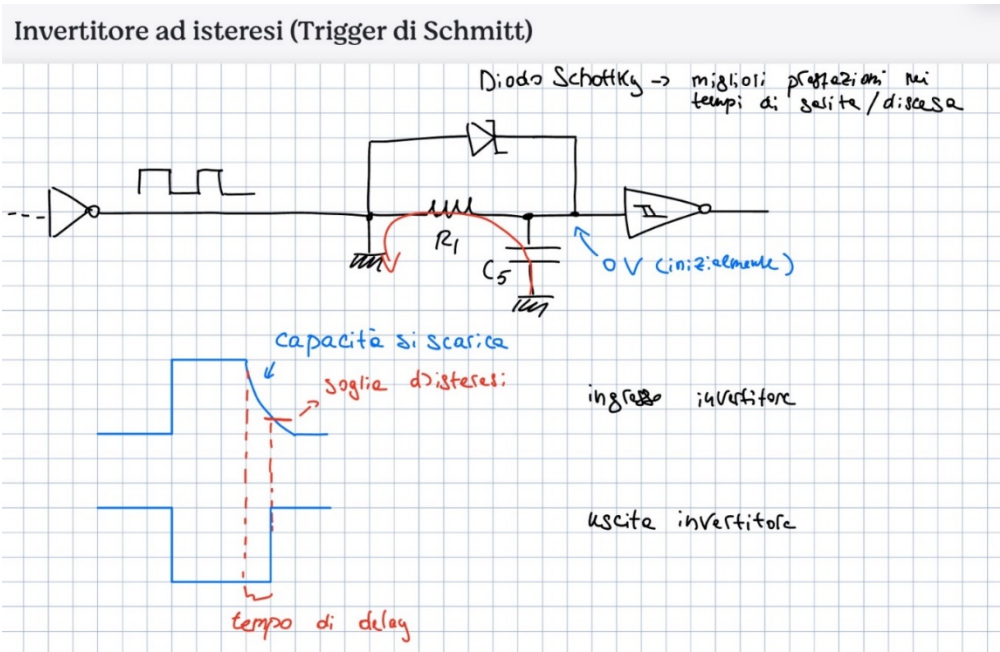 Invertitore ad isteresi (Trigger di Schmitt)
Diodo Schottky → migliori prestazioni nei
tempi di salita/discesa
R1
C5
0V (inizialmente)
capacità si scarica
soglia d'isteresi
ingresso invertitore
uscita invertitore
tempo di delay